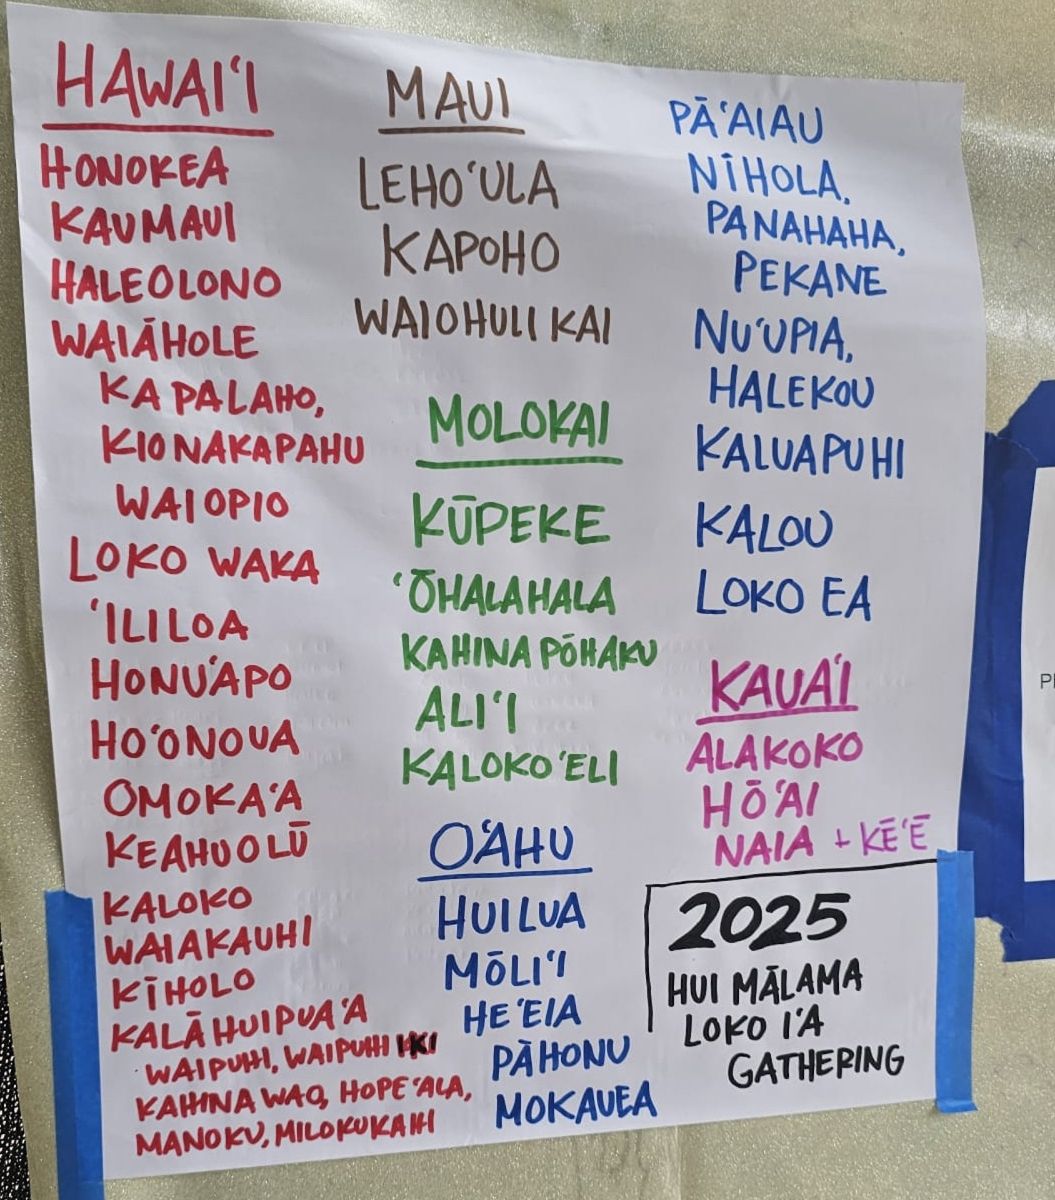 HAWAIʻI
HONOKEA
KAUMAUI
HALEOLONO
WAIĀHOLE
KAPALAHO,
KIONAKAPAHU
WAIOPIO
LOKO WAKA
ʻILILOA
HONUʻAPO
HOʻONOUA
OMOKAʻA
KEAHUOLŪ
KALOKO
WAIAKAUHI
KĪHOLO
KALĀHUIPUAʻA
WAIPUHI, WAIPUHI IKI
KAHINAWAO, HOPEʻALA,
MANOKU, MILOKUKAHI
MAUI
LEHOʻULA
KAPOHO
WAIOHULI KAI
MOLOKAI
KŪPEKE
ʻŌHALAHALA
KAHINAPŌHAKU
ALIʻI
KALOKOʻELI
OʻAHU
HUILUA
MŌLIʻI
HEʻEIA
PĀHONU
MOKAUEA
PĀʻAIAU
NĪHOLA,
PANAHAHA,
PEKANE
NUʻUPIA,
HALEKOU
KALUAPUHI
KALOU
LOKO EA
KAUAʻI
ALAKOKO
HŌʻAI
NAIA + KĒʻĒ
2025
HUI MĀLAMA
LOKO IʻA
GATHERING